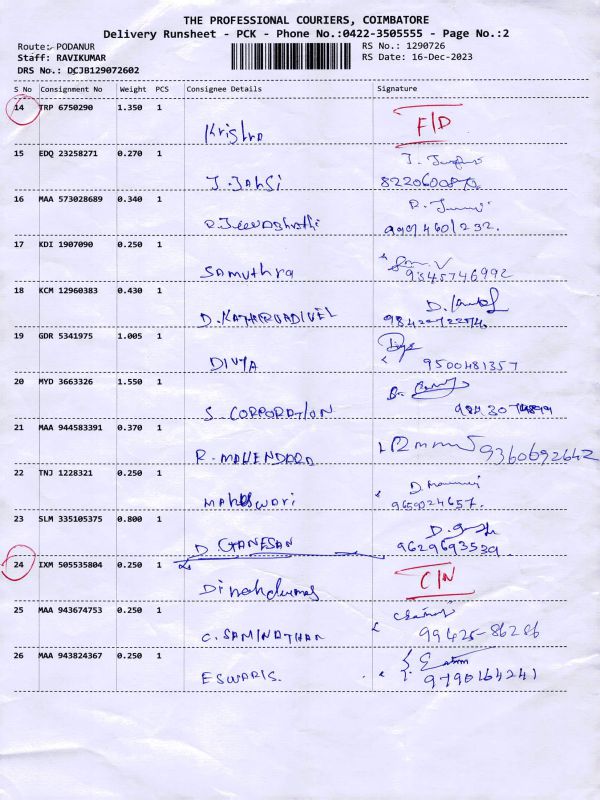 THE PROFESSIONAL COURIERS, COIMBATORE
Delivery Runsheet - PCK - Phone No.:0422-3505555 - Page No.:2
Route: PODANUR RS No.: 1290726
Staff: RAVIKUMAR RS Date: 16-Dec-2023
DRS No.: DCJB129072602
S No Consignment No Weight PCS Consignee Details Signature
14 TRP 6750290 1.350 1
Krishna F/D
15 EDQ 23258271 0.270 1
J. JANSI
16 MAA 573028689 0.340 1
17 KDI 1907090 0.250 1
Samuthra 9345746992
18 KCM 12960383 0.430 1
D. KATHIRVADIVEL
19 GDR 5341975 1.005 1
DIVYA 9500481357
20 MYD 3663326 1.550 1
S CORPORATION
21 MAA 944583391 0.370 1
R. MAHENDARA 9360692642
22 TNJ 1228321 0.250 1
Maheswari 9659024657.
23 SLM 335105375 0.800 1
D. GANESAN 9629693539
24 IXM 505535804 0.250 1
C/N
25 MAA 943674753 0.250 1
C. SAMINATHAN 99425-86286
26 MAA 943824367 0.250 1
ESWARIS. 9790164241